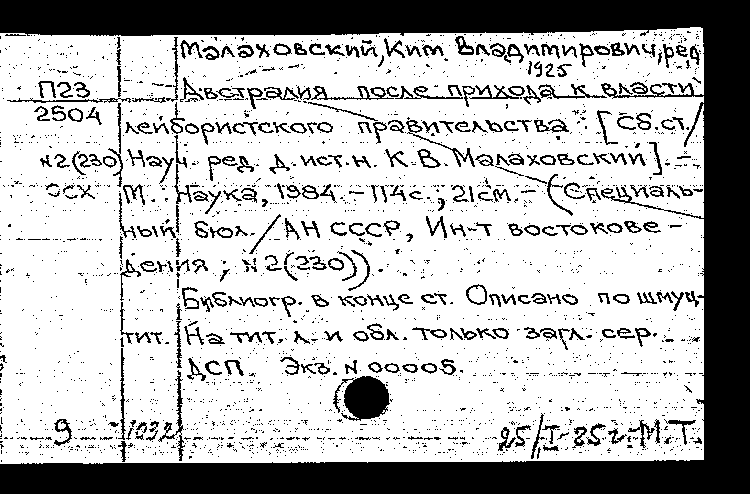 Малаховский, Ким Владимирович, ред
1925
П23 Австралия после прихода к власти
2504 лейбористского правительства : [Сб.ст./
N2(230) Науч. ред. д.ист.н. К.В. Малаховский]. –
ОСХ М. : Наука, 1984. – 114с.; 21см. – (Специаль-
ный бюл. / АН СССР, Ин-т востокове-
дения ; N 2(230)).
Библиогр. в конце ст. Описано по шмуц-
тит. На тит. л. и обл. только загл. сер.
ДСП. Экз. N 00005.
9 1032 25/I-85г. М.Т.